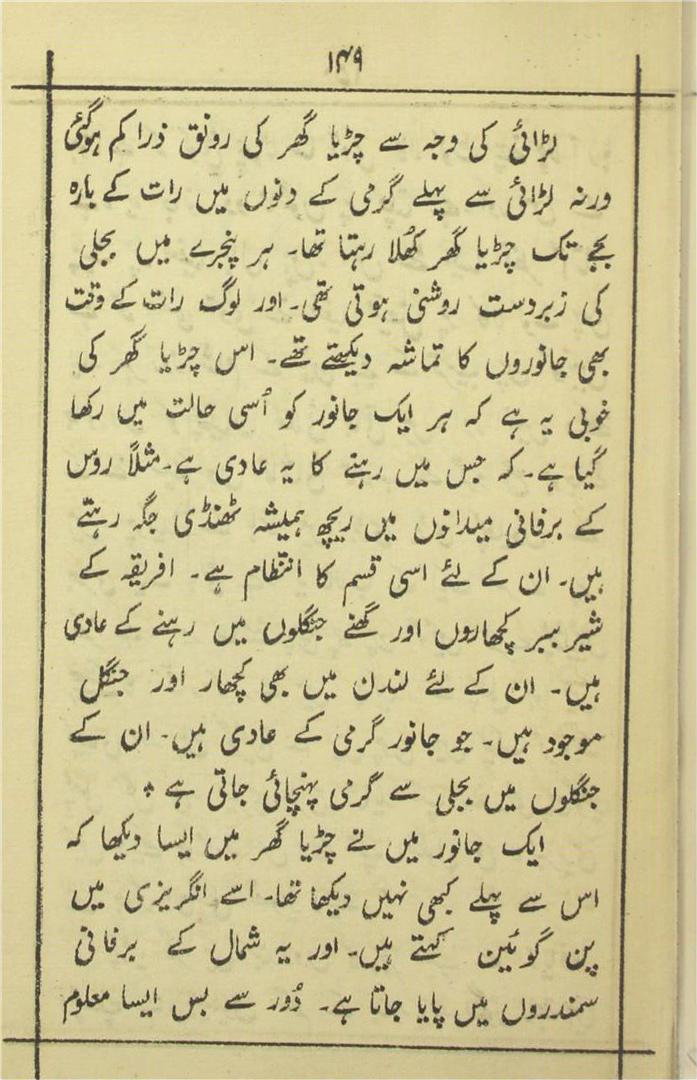 ۱۴۹
لڑائی کی وجہ سے چڑیا گھر کی رونق ذرا کم ہوگئی
ورنہ لڑائی سے پہلے گرمی کے دنوں میں رات کے بارہ
بجے تک چڑیا گھر کھُلا رہتا تھا۔ ہر پنجرے میں بجلی
کی زبردست روشنی ہوتی تھی۔ اور لوگ رات کے وقت
بھی جانوروں کا تماشہ دیکھتے تھے۔ اس چڑیا گھر کی
خوبی یہ ہے کہ ہر ایک جانور کو اُسی حالت میں رکھا
گیا ہے۔ کہ جس میں رہنے کا یہ عادی ہے۔ مثلاً روس
کے برفانی میدانوں میں ریچھ ہمیشہ ٹھنڈی جگہ رہتے
ہیں۔ ان کے لئے اسی قسم کا انتظام ہے۔ افریقہ کے
شیر ببر کچھاروں اور گھنے جنگلوں میں رہنے کے عادی
ہیں۔ ان کے لئے لندن میں بھی کچھار اور جنگل
موجود ہیں۔ جو جانور گرمی کے عادی ہیں۔ ان کے
جنگلوں میں بجلی سے گرمی پہنچائی جاتی ہے ٭
ایک جانور میں نے چڑیا گھر میں ایسا دیکھا کہ
اس سے پہلے کبھی نہیں دیکھا تھا۔ اسے انگریزی میں
پن گوئین کہتے ہیں۔ اور یہ شمال کے برفانی
سمندروں میں پایا جاتا ہے۔ دُور سے بس ایسا معلوم